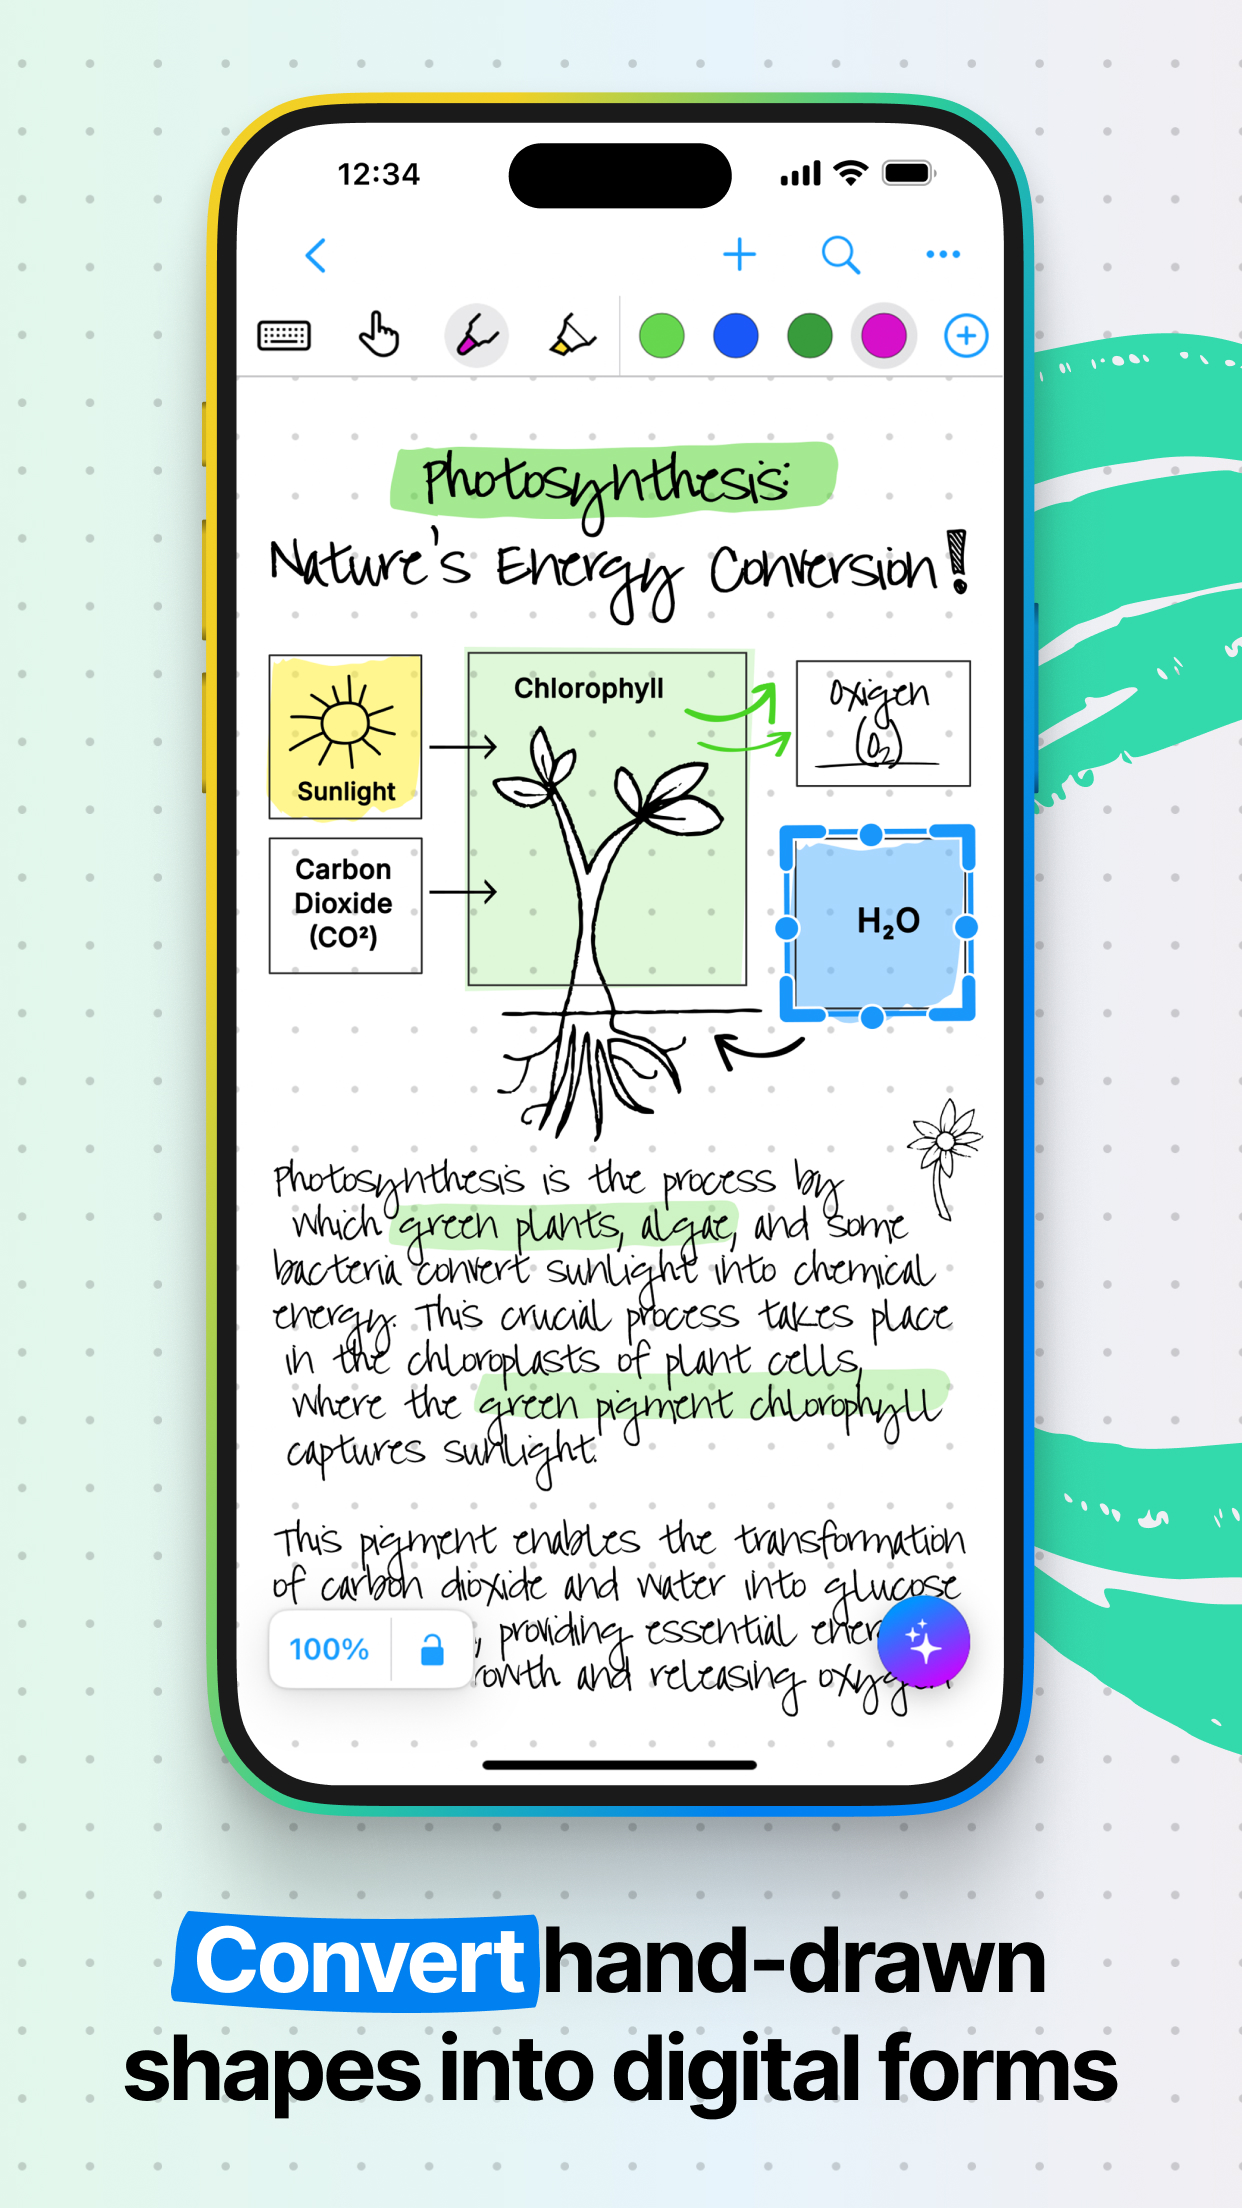 12:34
Photosynthesis:
Nature's Energy Conversion!
Chlorophyll
Sunlight
Oxigen
(O₂)
Carbon
Dioxide
(CO²)
H₂O
Photosynthesis is the process by
which green plants, algae, and some
bacteria convert sunlight into chemical
energy. This crucial process takes place
in the chloroplasts of plant cells,
where the green pigment chlorophyll
captures sunlight.
This pigment enables the transformation
of carbon dioxide and water into glucose
, providing essential
and releasing oxygen
100%
Convert hand-drawn
shapes into digital forms